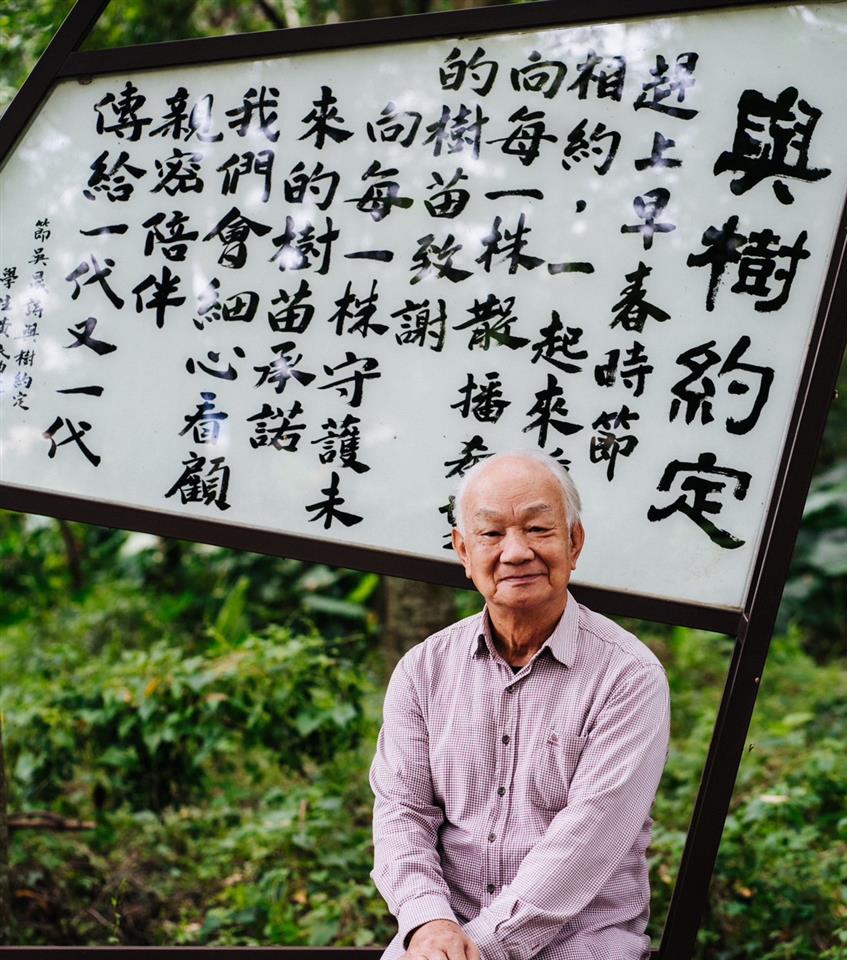 與樹約定
趕上早春時節
相約，一起來
向每一株散播希
的樹苗致謝
向每一株守護未
來的樹苗承諾
我們會細心看顧
親密陪伴
傳給一代又一代
節吳晟詩與樹約定
學生黃